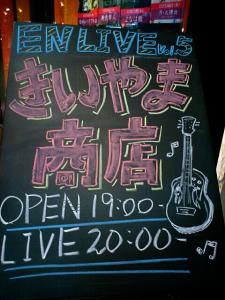 EN LIVE Vol.5
きいやま
商店
OPEN 19:00-
LIVE 20:00-